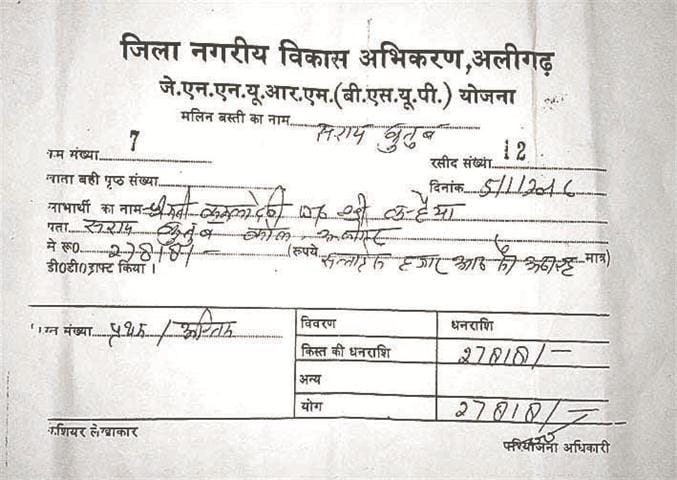 जिला नगरीय विकास अभिकरण,अलीगढ़
जे.एन.एन.यू.आर.एम.(बी.एस.यू.पी.) योजना
मलिन बस्ती का नाम सराय कुतुब
म संख्या 7 रसीद संख्या 12
ाता बही पृष्ठ संख्या दिनांक 5/1/2016
लाभार्थी का नाम श्रीमती कमलादेवी w/o श्री कन्हैया
पता सराय कुतुब कोल अलीगढ़
मे रू0 27818/- (रूपये सत्ताईस हजार आठ सौ अठारह मात्र)
डी0डी0 ड्राफ्ट किया ।
न संख्या प्रथम / अन्तिम
विवरण धनराशि
किस्त की धनराशि 27818/-
अन्य
योग 27818/-
शियर लेखाकार परियोजना अधिकारी